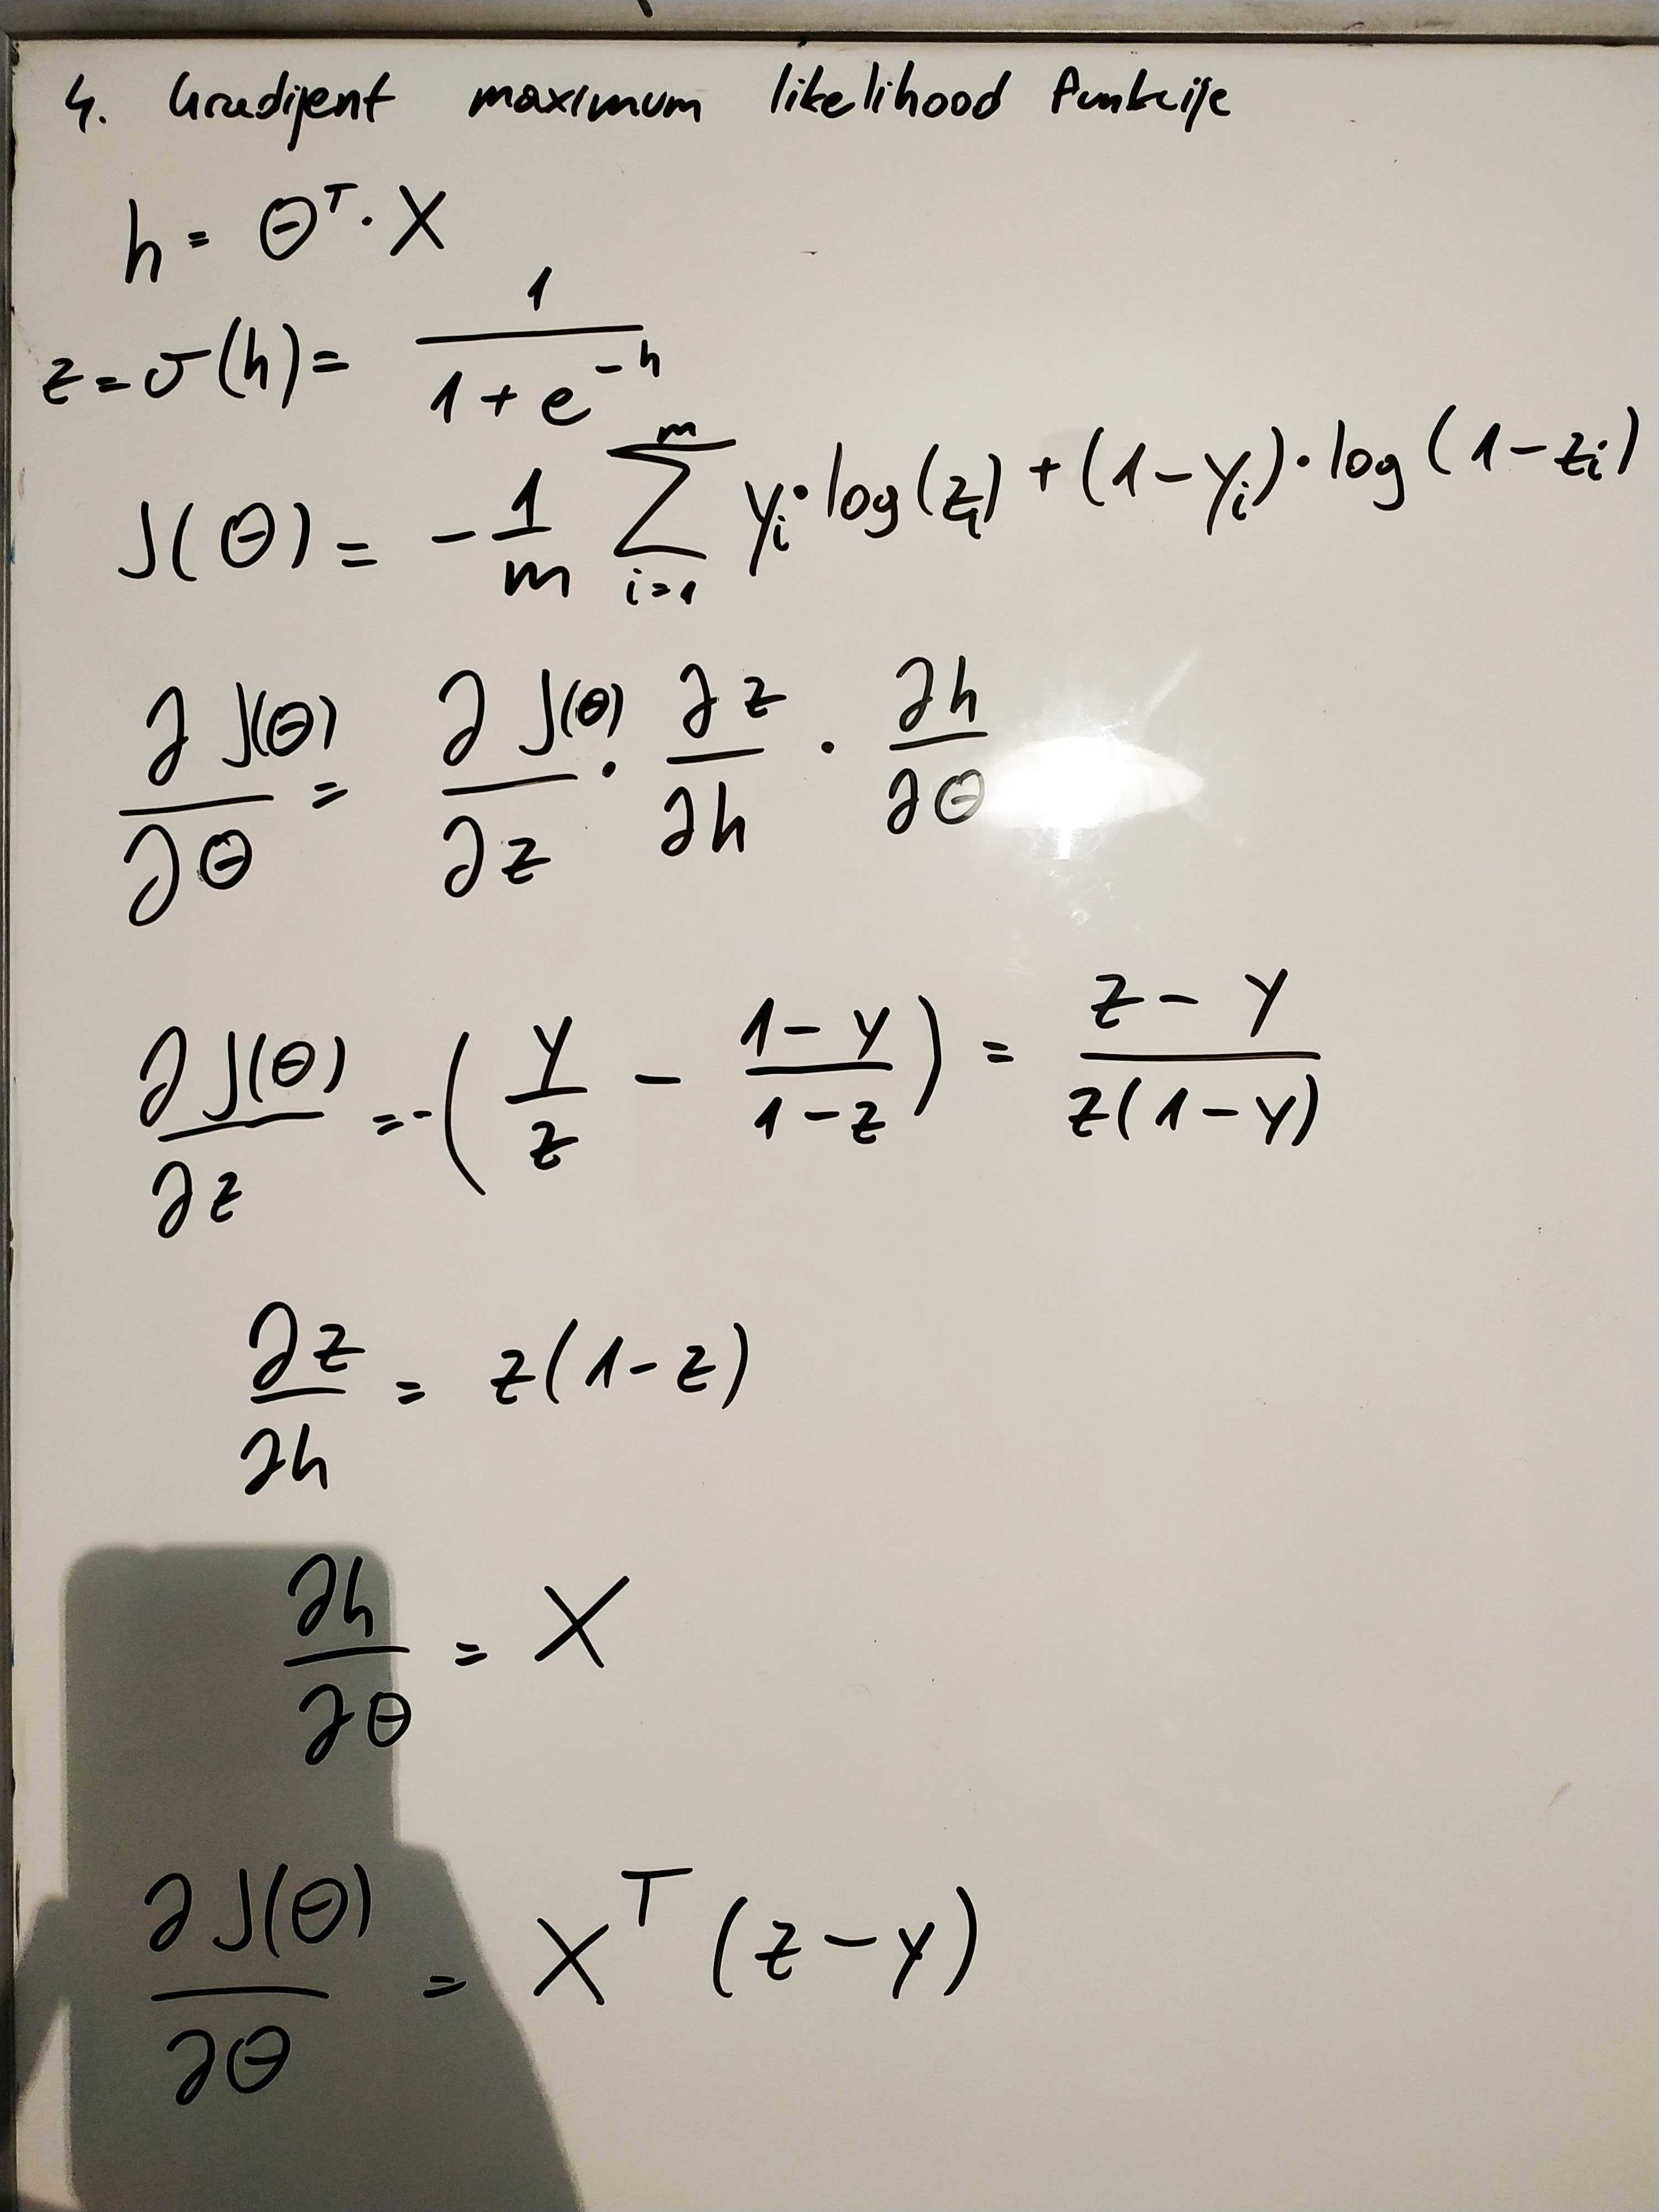 4. Gradijent maximum likelihood funkcije
h = θᵀ · X
z = σ(h) = 1 / (1 + e^(-h))
J(θ) = - 1/m ∑_{i=1}^{m} yᵢ · log(zᵢ) + (1 - yᵢ) · log(1 - zᵢ)
∂J(θ)/∂θ = ∂J(θ)/∂z · ∂z/∂h · ∂h/∂θ
∂J(θ)/∂z = -(y/z - (1-y)/(1-z)) = (z - y)/(z(1-y))
∂z/∂h = z(1-z)
∂h/∂θ = X
∂J(θ)/∂θ = Xᵀ(z-y)